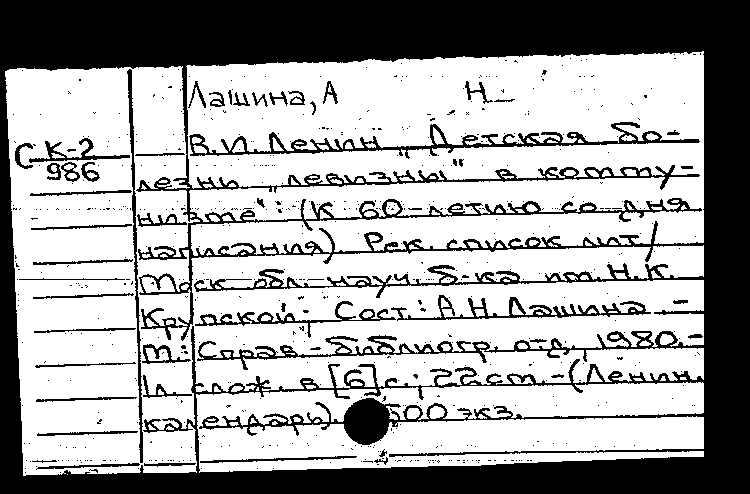 Лашина, А Н
С К-2
986
В.И. Ленин „Детская бо-
лезнь „левизны" в комму-
низме": (К 60-летию со дня
написания). Рек. список лит/
Моск обл. науч. б-ка им. Н.К.
Крупской; Сост.: А.Н. Лашина .-
М.: Справ.-библиогр. отд, 1980.-
1л. слож. в [6]с.; 22см.-(Ленин.
календарь). 500 экз.